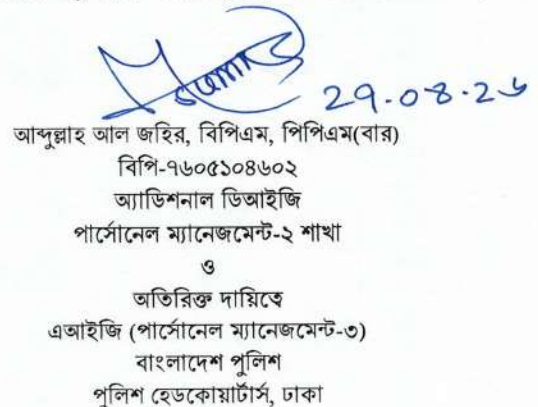 29.08.26
আব্দুল্লাহ আল জহির, বিপিএম, পিপিএম(বার)
বিপি-৭৬০৫১০৪৬০২
অ্যাডিশনাল ডিআইজি
পার্সোনেল ম্যানেজমেন্ট-২ শাখা
ও
অতিরিক্ত দায়িত্বে
এআইজি (পার্সোনেল ম্যানেজমেন্ট-৩)
বাংলাদেশ পুলিশ
পুলিশ হেডকোয়ার্টার্স, ঢাকা